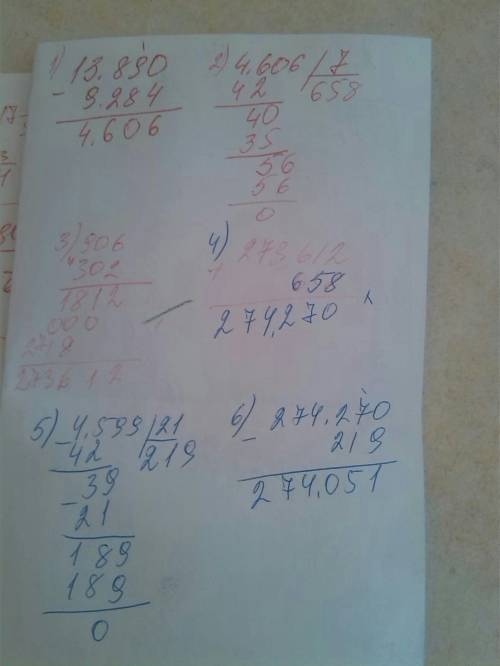 1) 13.890
- 9.284
4.606
2) 4.606 / 7
42 658
40
35
56
56
0
3) 906
302
1812
000
2718
273612
4) 273612
658
274.270
5) - 4.599 / 21
42 219
39
- 21
189
189
0
6) 274.270
- 219
274.051